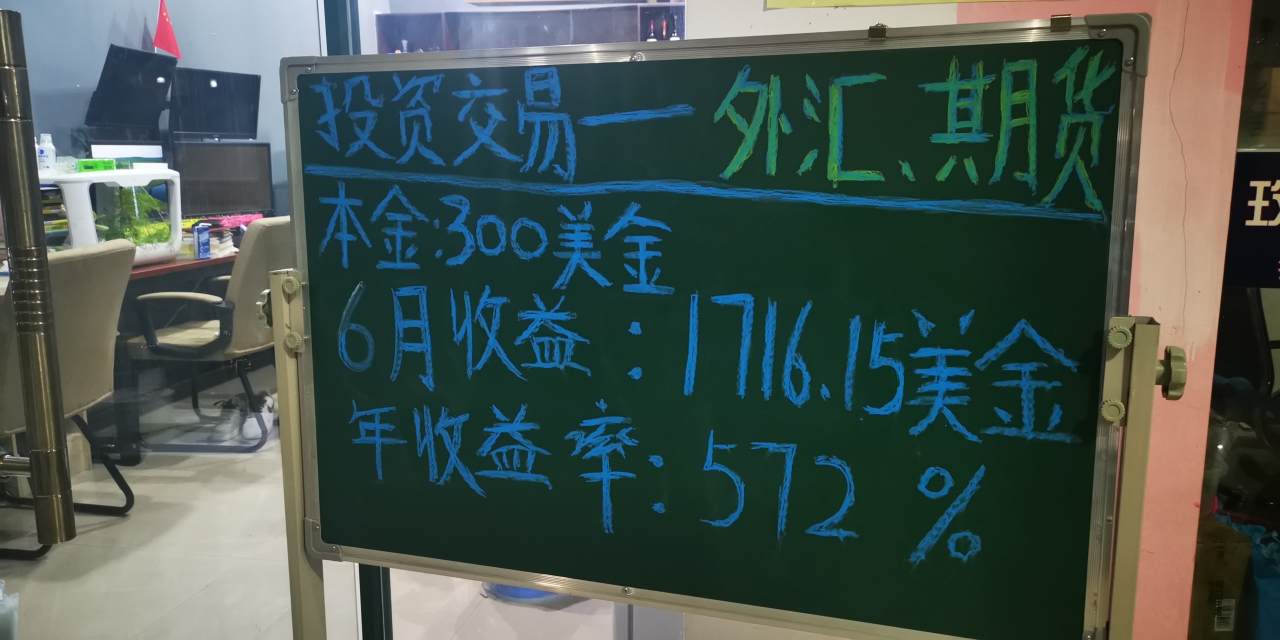 投资交易—外汇、期货
本金:300美金
6月收益:1716.15美金
年收益率:572%